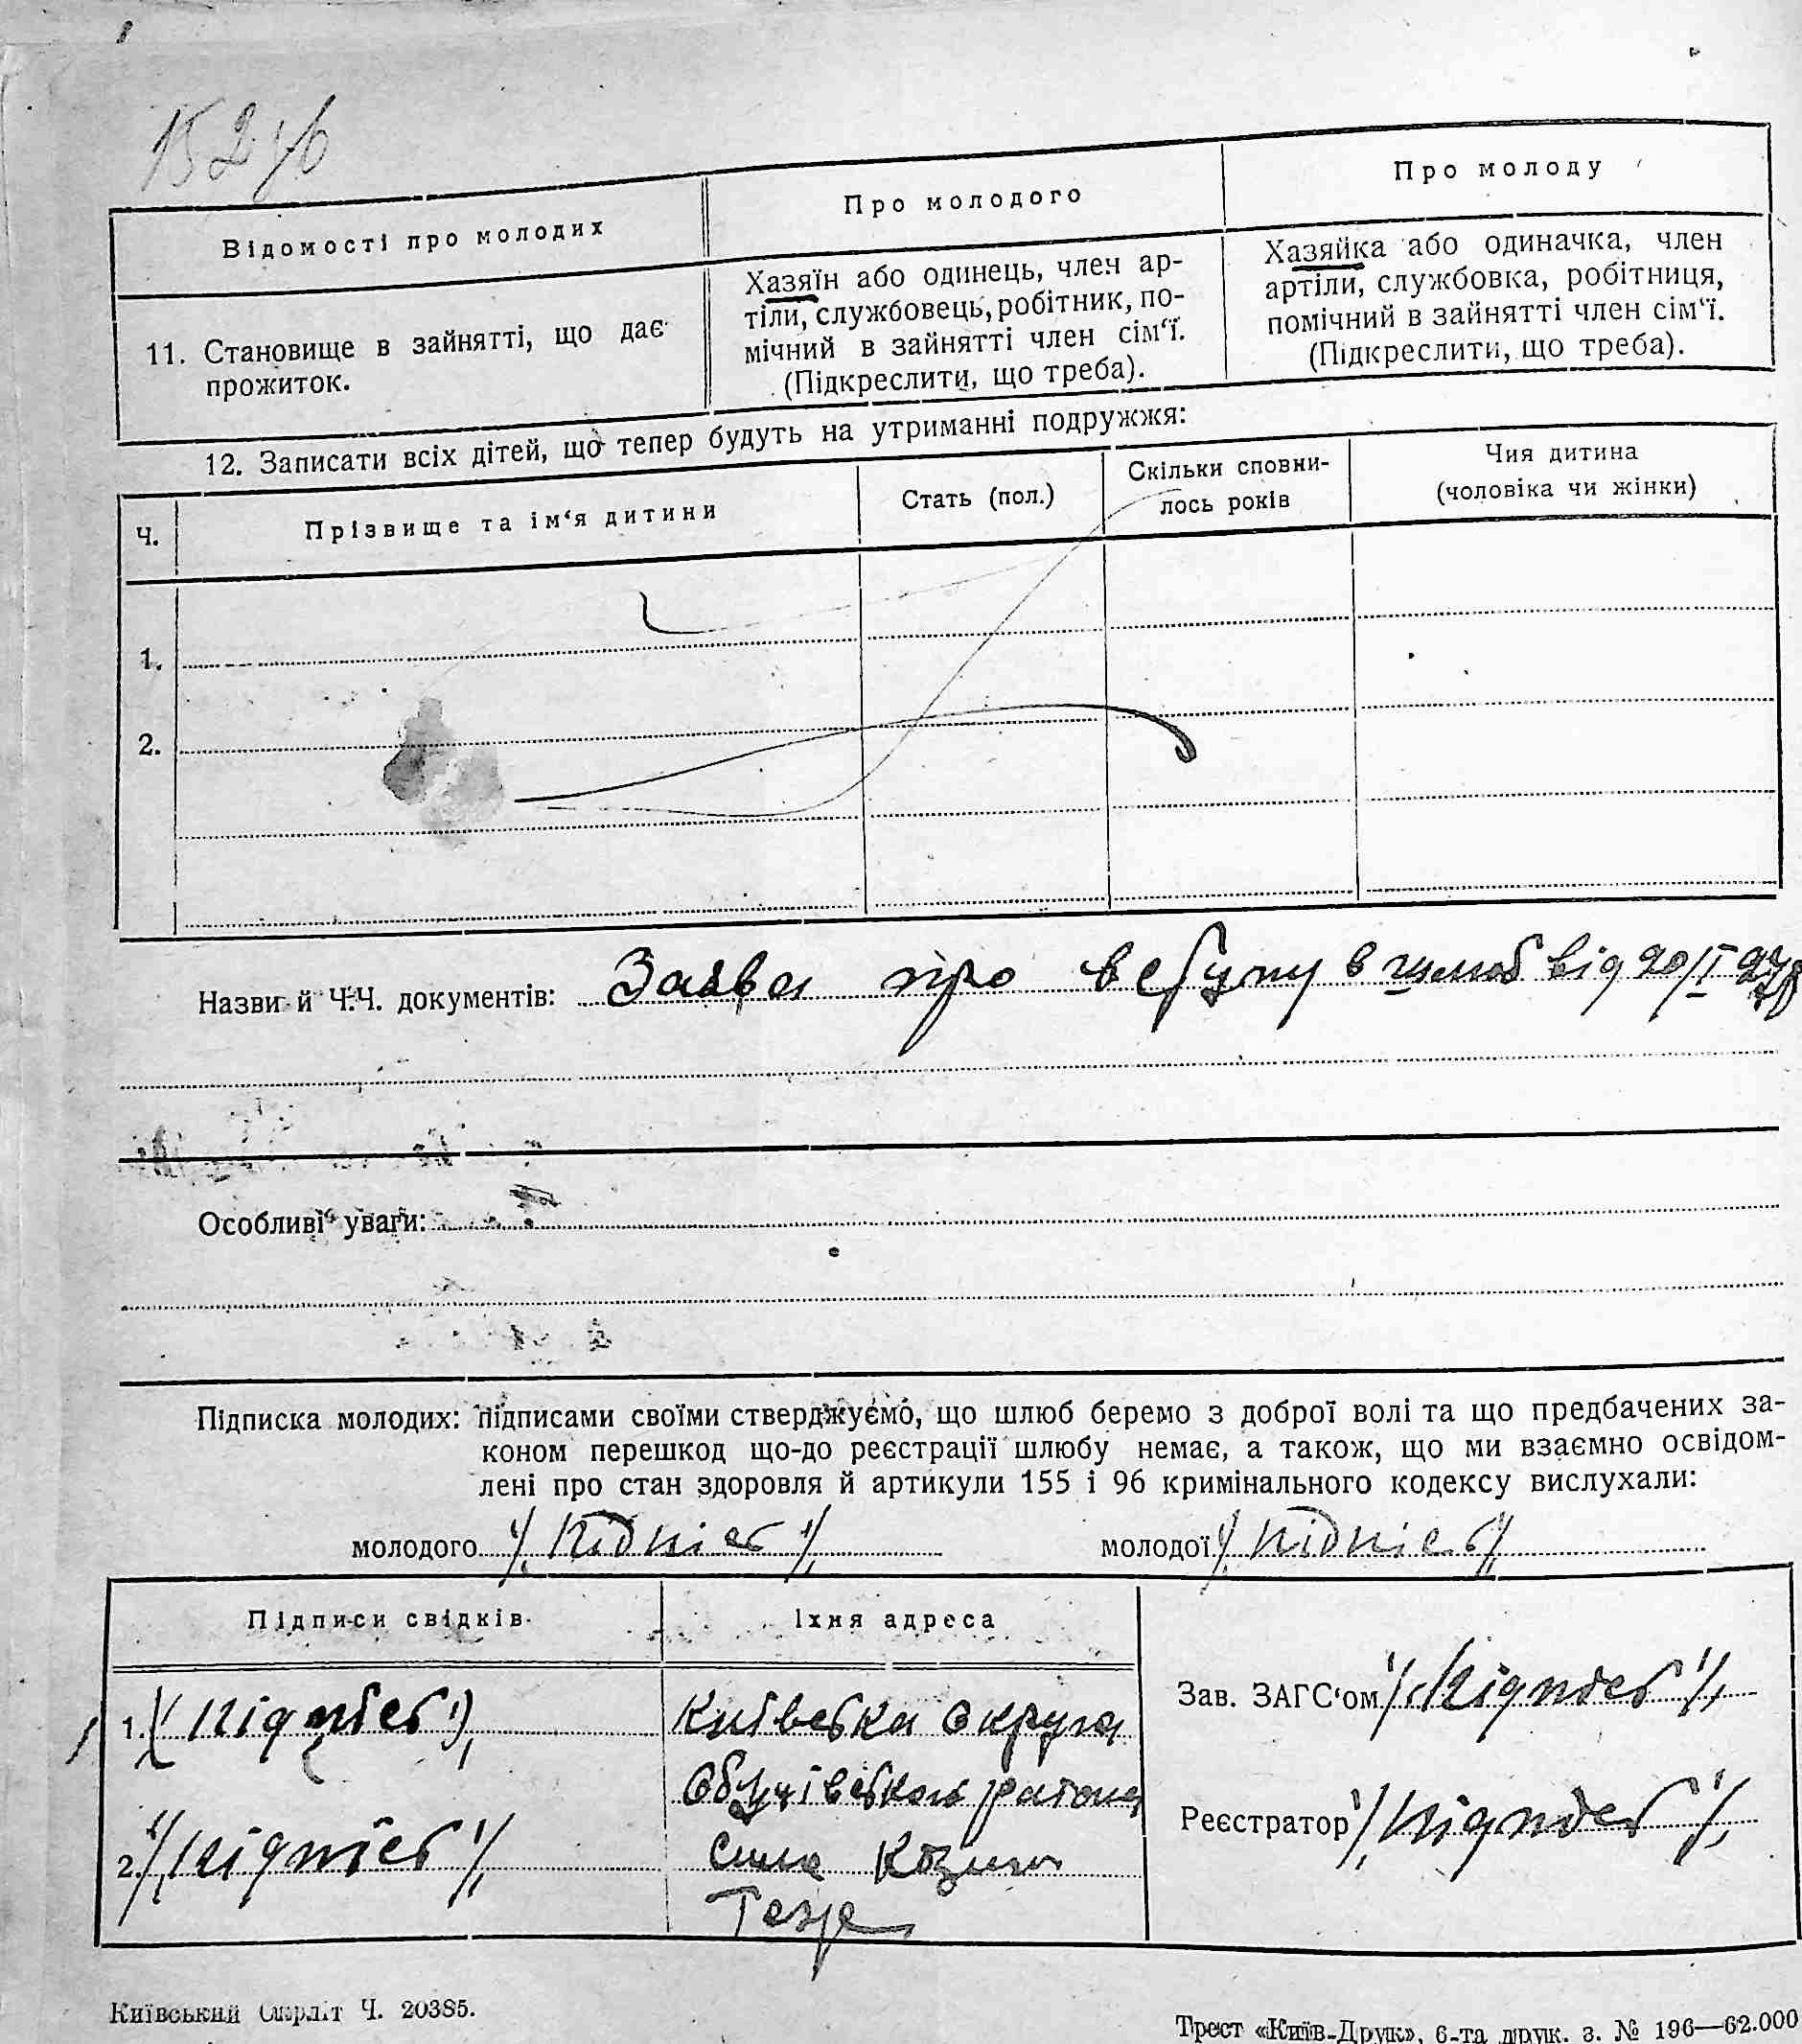 Відомості про молодих
Про молодого
Про молоду
11. Становище в зайнятті, що дає
прожиток.
Хазяїн або одинець, член ар-
тіли, службовець, робітник, по-
мічний в зайнятті член сім‘ї.
(Підкреслити, що треба).
Хазяйка або одиначка, член
артіли, службовка, робітниця,
помічний в зайнятті член сім‘ї.
(Підкреслити, що треба).
12. Записати всіх дітей, що тепер будуть на утриманні подружжя:
Ч.
Прізвище та ім‘я дитини
Стать (пол.)
Скільки сповни-
лось років
Чия дитина
(чоловіка чи жінки)
1.
2.
Назви й Ч.Ч. документів: Заява про вступ в шлюб від 20/I 27р
Особливі уваги:
Підписка молодих: підписами своїми стверджуємо, що шлюб беремо з доброї волі та що предбачених за-
коном перешкод що-до реєстрації шлюбу немає, а також, що ми взаємно освідом-
лені про стан здоровля й артикули 155 і 96 кримінального кодексу вислухали:
молодого /Підпіс/
молодої /Підпіс/
Підписи свідків
Їхня адреса
1. /Підпіс/
2. /Підпіс/
Київська округа
Обухівського района
Село Козин
Зав. ЗАГС‘ом /Підпіс/
Реєстратор /Підпіс/
Київський Окрліт Ч. 20385.
Трест «Київ-Друк», 6-та друк. з. № 196—62.000